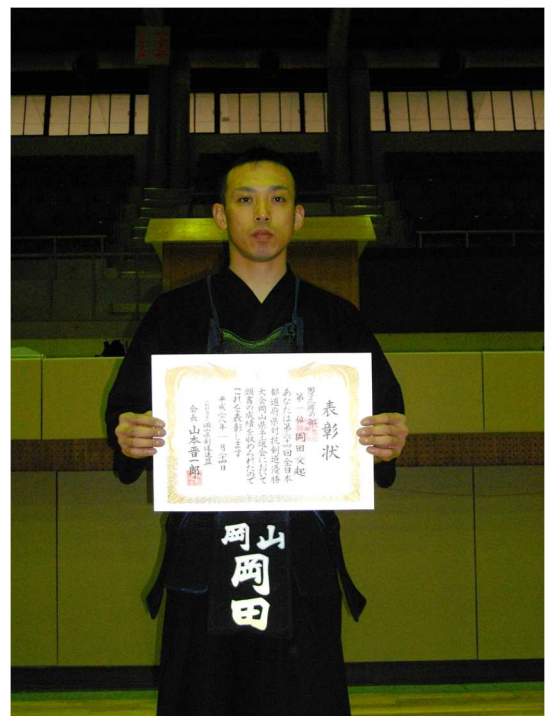 表彰状
第一位 岡田
あなたは第六十四回全日本
都道府県対抗剣道優勝
大会岡山県予選会において
頭書の成績を収められたので
これを表彰します
平成二十八年一月二十四日
会長 山本晋一郎
山岡
岡田